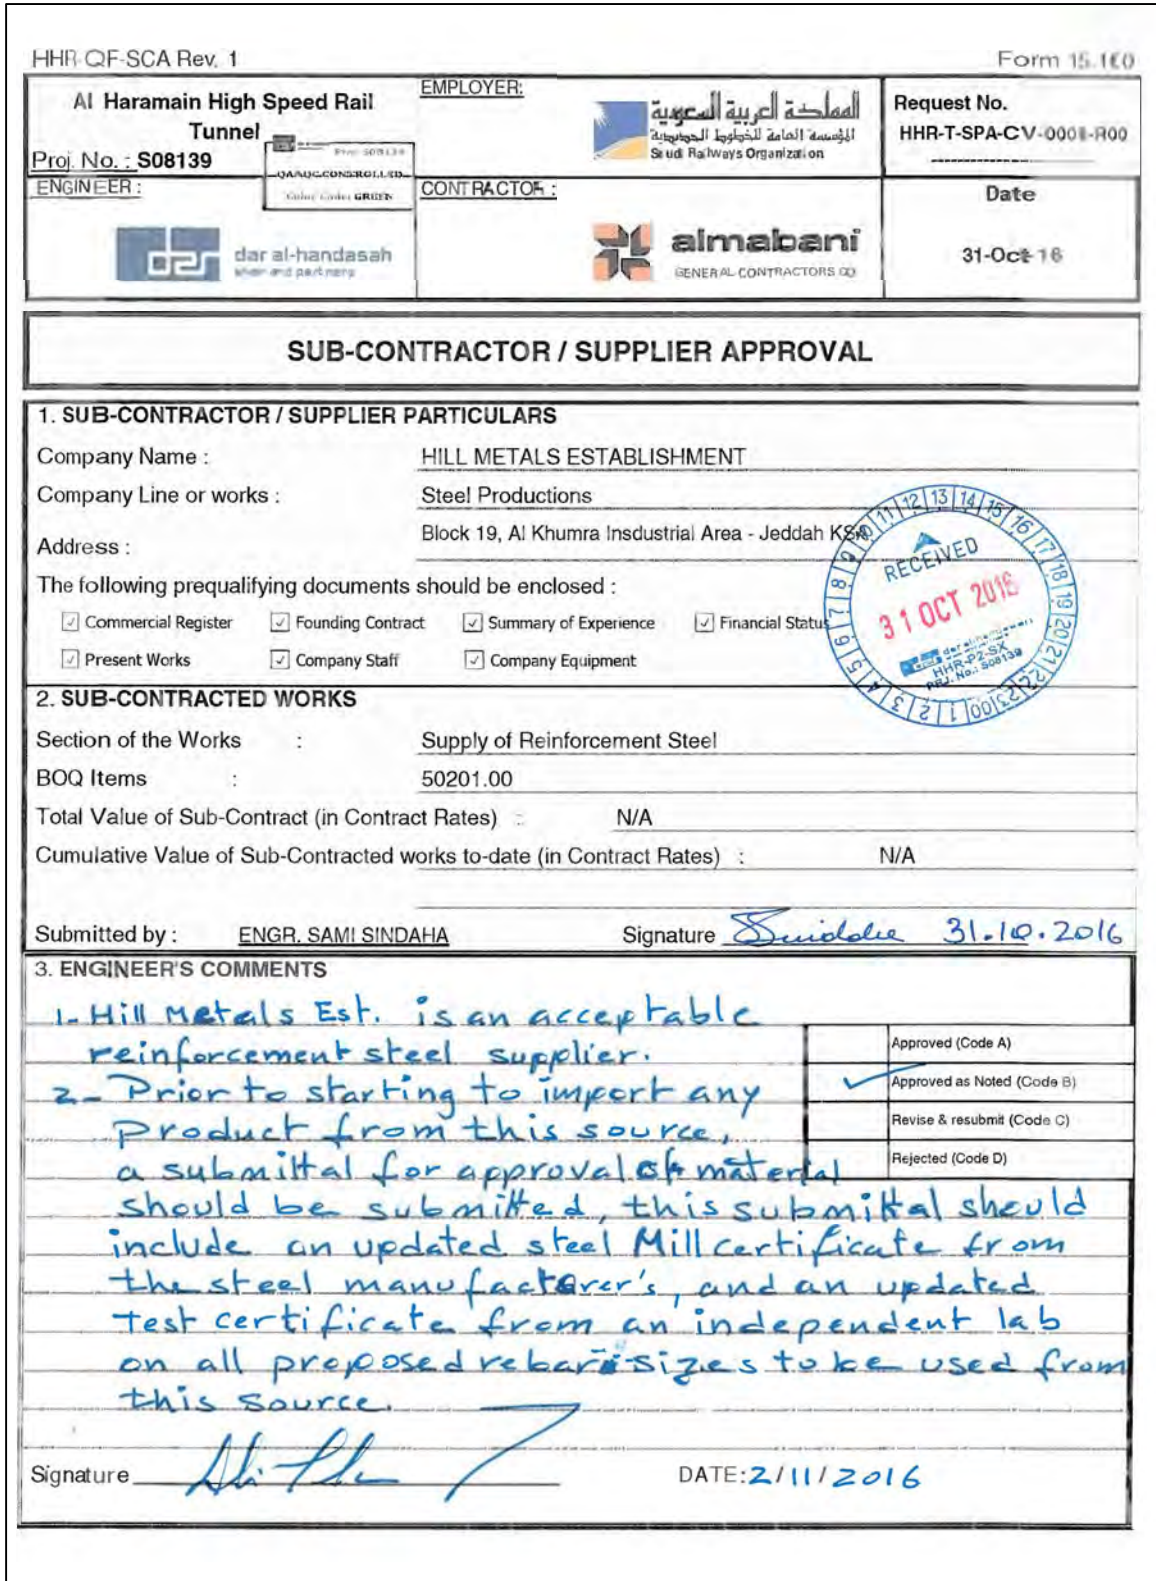 HHR-QF-SCA Rev. 1
Form 15.160
Al Haramain High Speed Rail
Tunnel
Proj. No. : S08139
Proj: S08139
QA/QC CONTROLLED
Color Code: GREEN
EMPLOYER:
المملكة العربية السعودية
المؤسسة العامة للخطوط الحديدية
Saudi Railways Organization
Request No.
HHR-T-SPA-CV-0001-R00
ENGINEER :
dar al-handasah
shair and partners
CONTRACTOR :
almabani
GENERAL CONTRACTORS CO
Date
31-Oct-16
SUB-CONTRACTOR / SUPPLIER APPROVAL
1. SUB-CONTRACTOR / SUPPLIER PARTICULARS
Company Name : HILL METALS ESTABLISHMENT
Company Line or works : Steel Productions
Address : Block 19, Al Khumra Insdustrial Area - Jeddah KSA
The following prequalifying documents should be enclosed :
Commercial Register Founding Contract Summary of Experience Financial Status
Present Works Company Staff Company Equipment
00 1 2 3 4 5 6 7 8 9 10 11 12 13 14 15 16 17 18 19 20 21 22 23
RECEIVED
31 OCT 2016
dar al-handasah
HHR-P2-SX
PRJ. No.: S08139
2. SUB-CONTRACTED WORKS
Section of the Works : Supply of Reinforcement Steel
BOQ Items : 50201.00
Total Value of Sub-Contract (in Contract Rates) : N/A
Cumulative Value of Sub-Contracted works to-date (in Contract Rates) : N/A
Submitted by : ENGR. SAMI SINDAHA Signature 31.10.2016
3. ENGINEER'S COMMENTS
1- Hill Metals Est. is an acceptable
reinforcement steel supplier.
2- Prior to starting to import any
Product from this source,
a submittal for approval of material
should be submitted, this submittal should
include an updated steel Mill certificate from
the steel manufacturer's, and an updated
test certificate from an independent lab
on all proposed rebar sizes to be used from
this source.
Approved (Code A)
Approved as Noted (Code B)
Revise & resubmit (Code C)
Rejected (Code D)
Signature
DATE: 2/11/2016